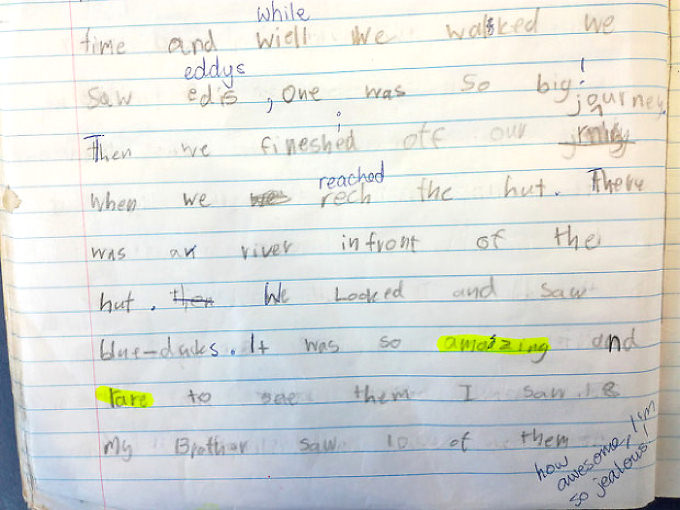 while
time and wiell We walked we
eddys
saw edis, One was so big!
journey.
Then we fineshed off our
reached
When we rech the hut. There
was a river infront of the
hut. then We Looked and saw
blue-ducks. It was so amaizing and
rare to see them I saw 8
My Brother saw 10 of them
how awesome! I'm
so jealous!